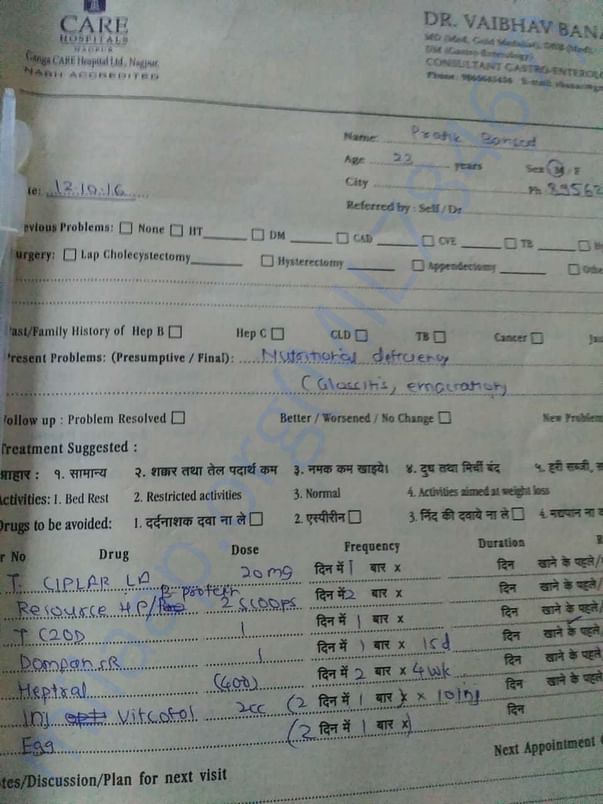 CARE
HOSPITALS
NAGPUR
Ganga CARE Hospital Ltd., Nagpur
NABH ACCREDITED
DR. VAIBHAV BANA
MD (Med, Gold Medalist), DNB (Med),
DM (Gastro Enterology)
CONSULTANT GASTRO-ENTEROL
Name Pratik Bansod
Age 22 years Sex M / F
te: 12.10.16 City Ph 89562
Referred by : Self / Dr
evious Problems: None HT DM CAD CVE TB
urgery: Lap Cholecystectomy Hysterectomy Appendectomy Othe
ast/Family History of Hep B Hep C CLD TB Cancer Jau
resent Problems: (Presumptive / Final): Nutritional deficiency
(Glossitis, emaciation)
ollow up : Problem Resolved Better / Worsened / No Change New Problem
Treatment Suggested :
आहार : १. सामान्य २. शक्कर तथा तेल पदार्थ कम ३. नमक कम खाइये। ४. दुध तथा मिर्ची बंद ५. हरी सब्जी,
ctivities: 1. Bed Rest 2. Restricted activities 3. Normal 4. Activities aimed at weight loss
Drugs to be avoided: 1. दर्दनाशक दवा ना ले 2. एस्पीरीन 3. निंद की दवाये ना ले 4. मद्यपान ना
r No Drug Dose Frequency Duration
T. CIPLAR LA 20mg दिन में 1 बार x दिन खाने के पहले/
Resource HP/ B-protein 2 scoops दिन में 2 बार x दिन खाने के पहले/
T C20D 1 दिन में 1 बार x दिन खाने के पहले/
Dompan SR 1 दिन में 1 बार x 15d दिन खाने के पहले/
Heptral (400) दिन में 2 बार x 4wk दिन खाने के पहले/
Inj Vitcofol 2cc (2 दिन में 1 बार x) x 10 Inj दिन खाने के पहले
Egg (2 दिन में 1 बार x) दिन
Next Appointment
tes/Discussion/Plan for next visit